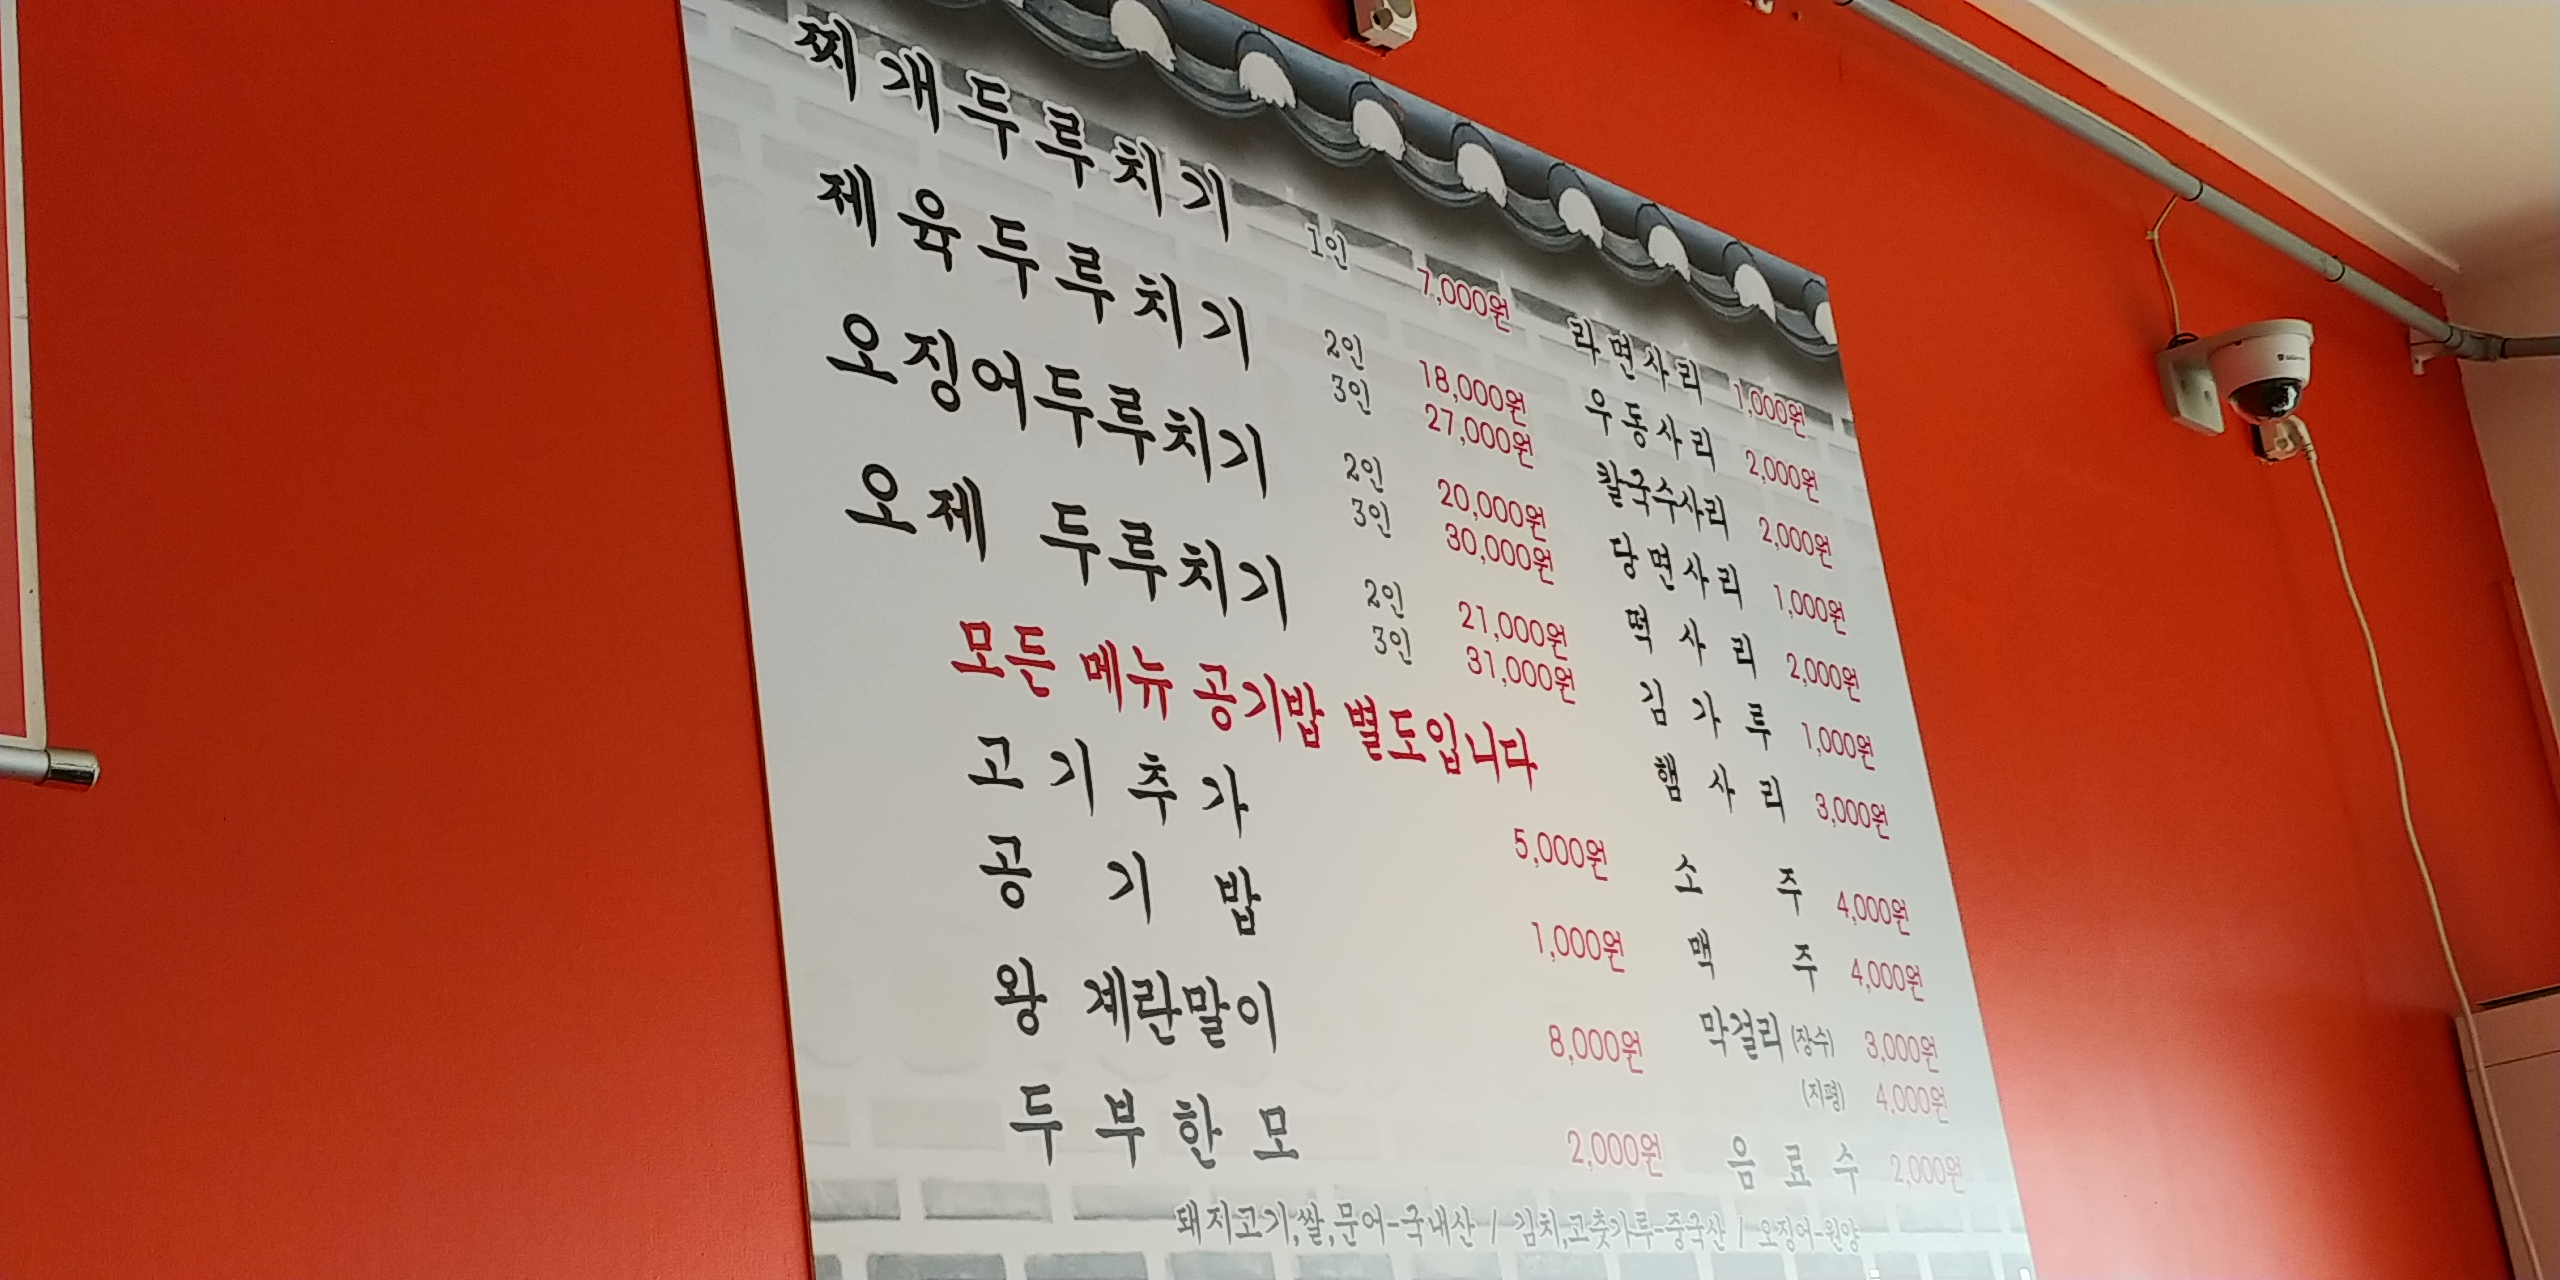 찌개두루치기 1인 7,000원
제육두루치기 2인 18,000원
3인 27,000원
오징어두루치기 2인 20,000원
3인 30,000원
오제 두루치기 2인 21,000원
3인 31,000원
모든 메뉴 공기밥 별도입니다
고기추가 5,000원
공기밥 1,000원
왕 계란말이 8,000원
두부한모 2,000원
라면사리 1,000원
우동사리 2,000원
칼국수사리 2,000원
당면사리 1,000원
떡사리 2,000원
김가루 1,000원
햄사리 3,000원
소주 4,000원
맥주 4,000원
막걸리 (장수) 3,000원
(지평) 4,000원
음료수 2,000원
돼지고기,쌀,문어-국내산 / 김치,고춧가루-중국산 / 오징어-원양